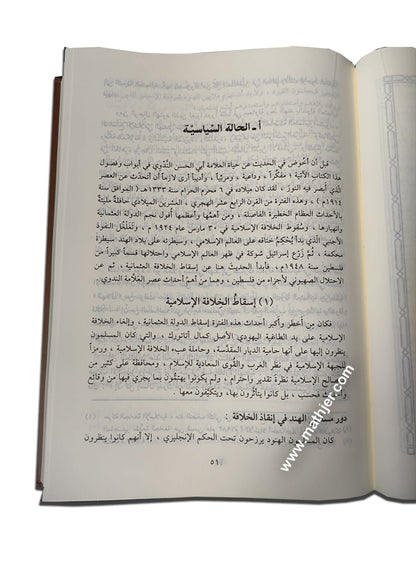 أ-الحالة السّياسيّة
قبل أن أخوض في الحديث عن حياة العلامة أبي الحسن النّدوي في أبواب وفصول
هذا الكتاب الآتية ؛ مفكّراً ، وداعية ، ومربّياً ، وأديباً أرى لازماً أن أتحدث عن العصر
الذي أبصر فيه النور ، لقد كان ميلاده في ٦ محرم الحرام سنة ١٣٣٣هـ ( الموافق سنة
١٩١٤م ) ، وهذه الفترة من القرن الرابع عشر الهجري ، العشرين الميلادي حافلةٌ مليئةٌ
بالأحداث العظام الخطيرة الفاصلة ، ومن أهمّها وأعظمها أفول نجم الدولة العثمانية
وانهيارها ، وسُقوط الخلافة الإسلامية في ٣٠ مارس عام ١٩٢٤م ، وتَغَلْغُل النفوذ
الأجنبي الذي بدأ يُحْكِمُ خناقه على العالم الإسلامي ، وسَيطرته على بلاد الهند سيطرة
محكمة ، ثُمَّ زَرْع إسرائيل شوكة في ظهر العالم الإسلامي واحتلالها قسماً كبيراً من
فلسطين سنة ١٩٤٨م . فأبدأ الحديث هنا عن إسقاط الخلافة العثمانية ، ثم عن
الاحتلال الصهيوني لأجزاء من فلسطين ، وهما من أهمّ أحداث عصر العَلّامة الندوي .
(١) إسقاطُ الخلافة الإسلامية
فكان مِن أخطر وأكبر أحداث هذه الفترة إسقاط الدولة العثمانية ، وإلغاء الخلافة
الإسلامية على يد الطاغية اليهودي الأصل كمال أتاتورك ، والمسلمون كانوا
ينظرون إليها على أنها حامية الديار المقدّسة ، وحاملة عبء الخلافة الإسلامية ، ورمزاً
للجبهة الإسلامية في نظر الغرب والقوى المعادية للإسلام ، ومحافظة على كثير من
مصالح الإسلامية نظرة تقدير واحترام ، ولم يكونوا يهتمُّون بما يجري فيها من وقائع
وأحداث فحسب ، بل كانوا يتأثّرون بها ، ويتكيّفون معها .
دور مسلمي الهند في إنقاذ الخلافة :
كان المسلمون الهنود يرزحون تحت الحكم الإنجليزي ، إلا أنهم كانوا ينظرون
٥١
www.mathjer.com